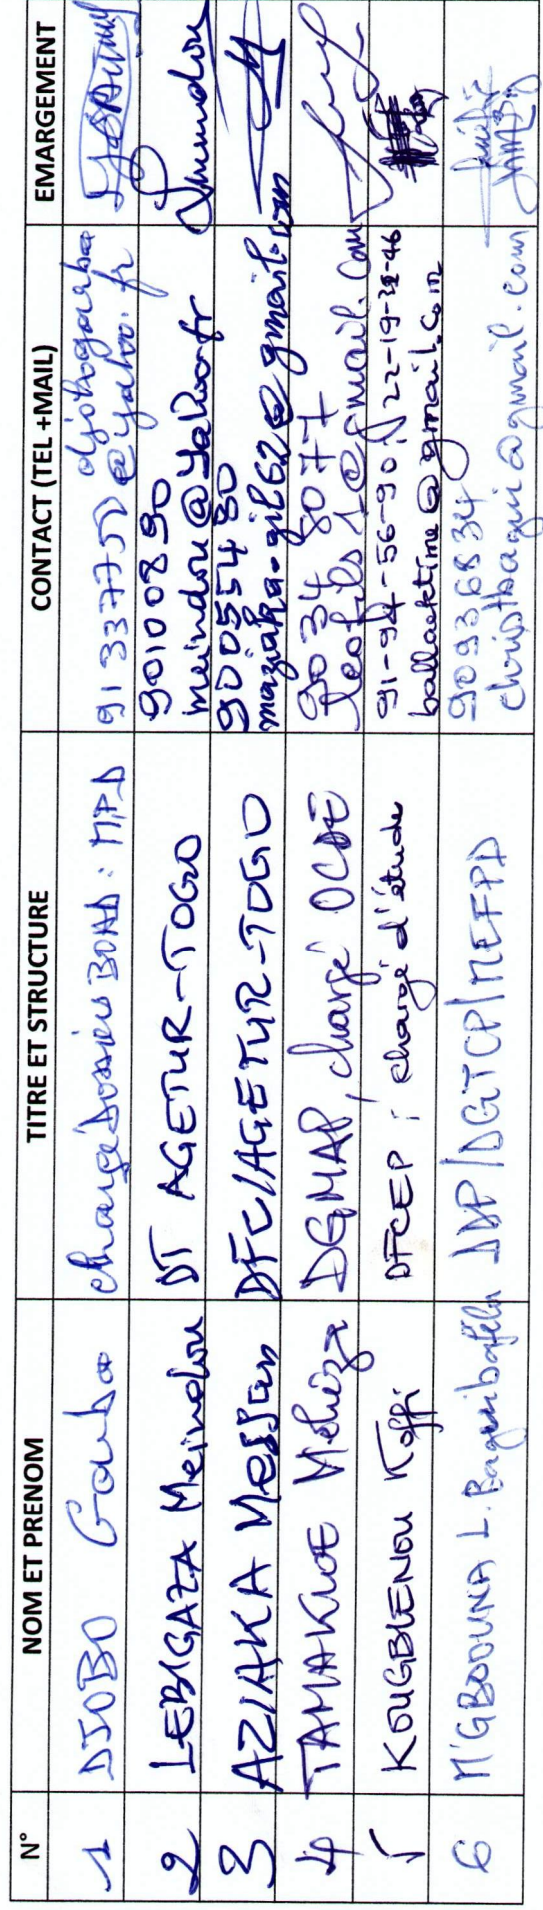 N° NOM ET PRENOM TITRE ET STRUCTURE CONTACT (TEL +MAIL) EMARGEMENT
1 DJOBO Garba chargé Dossiers BOAD : MPD 91337750
@yahoo.fr
2 LEBIGAZA Meindou DT AGETUR-TOGO 90100890
meindou@yahoo.fr
3 AZIAKA Messan DFC/AGETUR-TOGO 90055480
maziaka-gil62@gmail.com
4 TAMAKLOE Mehéza DGMAP, chargé 9034 8077
leofils1@gmail.com
5 KOUGBLENOU Koffi DFCEP ; chargé d'étude 91-94-56-90
ballacktime@gmail.com
6 M'GBOOUNA L. DDP/DGTCP/MEFPD 90936834
christbagui@gmail.com